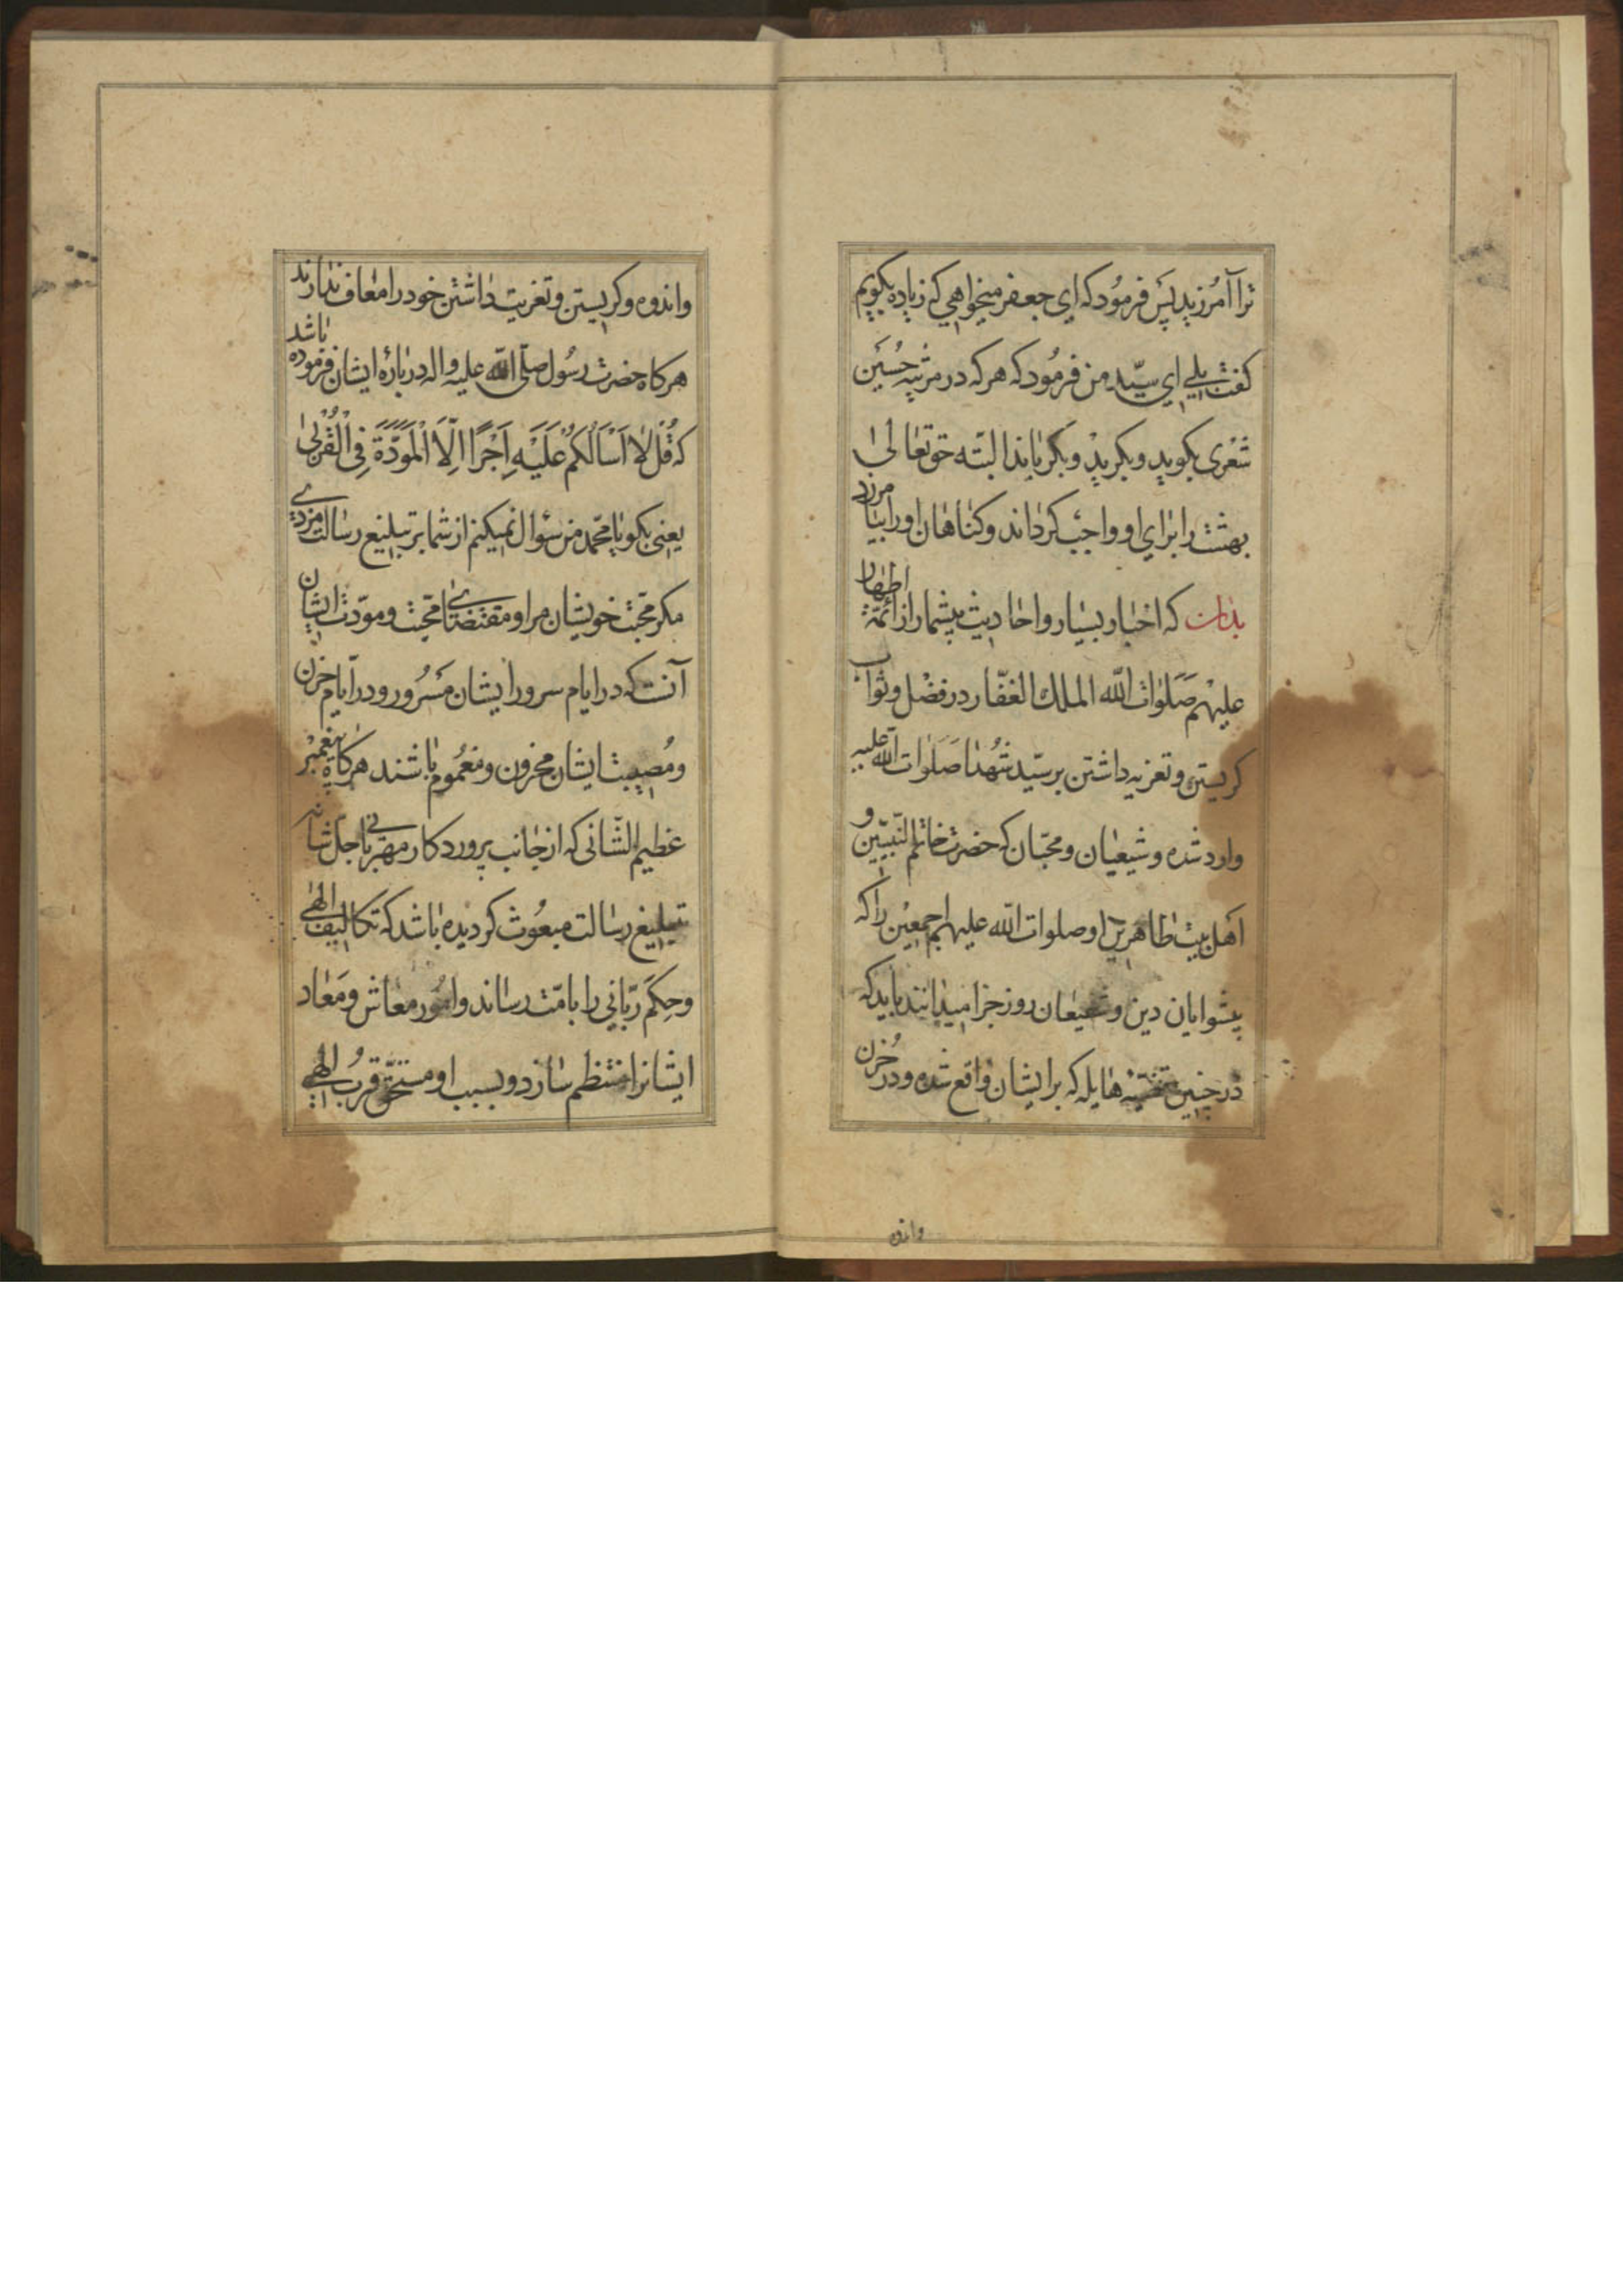 ترا آمرزید پس فرمود که ای جعفر میخواهی که زیاده بگویم
گفت بلی ای سیّد من فرمود که هر که در مرثیه حُسَین
شعری بگوید و بگرید و بگریاند البتّه حق تعالی
بهشت را برای او واجب گرداند و گناهان او را بیامرزد
بدان که اخبار بسیار و احادیث بیشمار از ائمّهٔ اطهار
علیهم صَلَوات الله الملک الغفّار در فضل و ثواب
گریستن و تعزیه داشتن بر سیّد شهدا صَلَوات الله علیه
وارد شده و شیعیان و محبّان که حضرت خاتم النّبیّین و
اهل بیت طاهرین او صلوات الله علیهم اجمعین را که
پیشوایان دین و شفیعان روز جزا میدانند باید که
در چنین هایله که بر ایشان واقع شده و در حُزن
واندو
واندوه و گریستن و تعزیت داشتن خود را معاف ندارند
هر گاه حضرت رسُول صلّی الله علیه واله در بارهٔ ایشان فرموده باشد
که قُل لا اَسْاَلُکُمْ عَلَیْهِ اَجْرًا اِلَّا الْمَوَدَّةَ فِی الْقُرْبیٰ
یعنی بگو یا محمّد من سؤال نمیکنم از شما بر تبلیغ رسالت مزدی
مگر محبّت خویشان مرا و مقتضای محبّت و مودّت ایشان
آنست که در ایام سرور ایشان مَسْرُور و در ایّام حزن
و مُصیبت ایشان محزون و مغمُوم باشند هر گاه پیغمبر
عظیم الشّانی که از جانب پروردگار مهربانی جلّ شانه
تبلیغ رسالت مبعُوث گردیده باشد که تکالیف الهی
و حِکَم ربّانی را بامّت رساند و امُور معاش و مَعاد
ایشانرا منتظم سازد و بسبب او مستحقّ قرب الهی